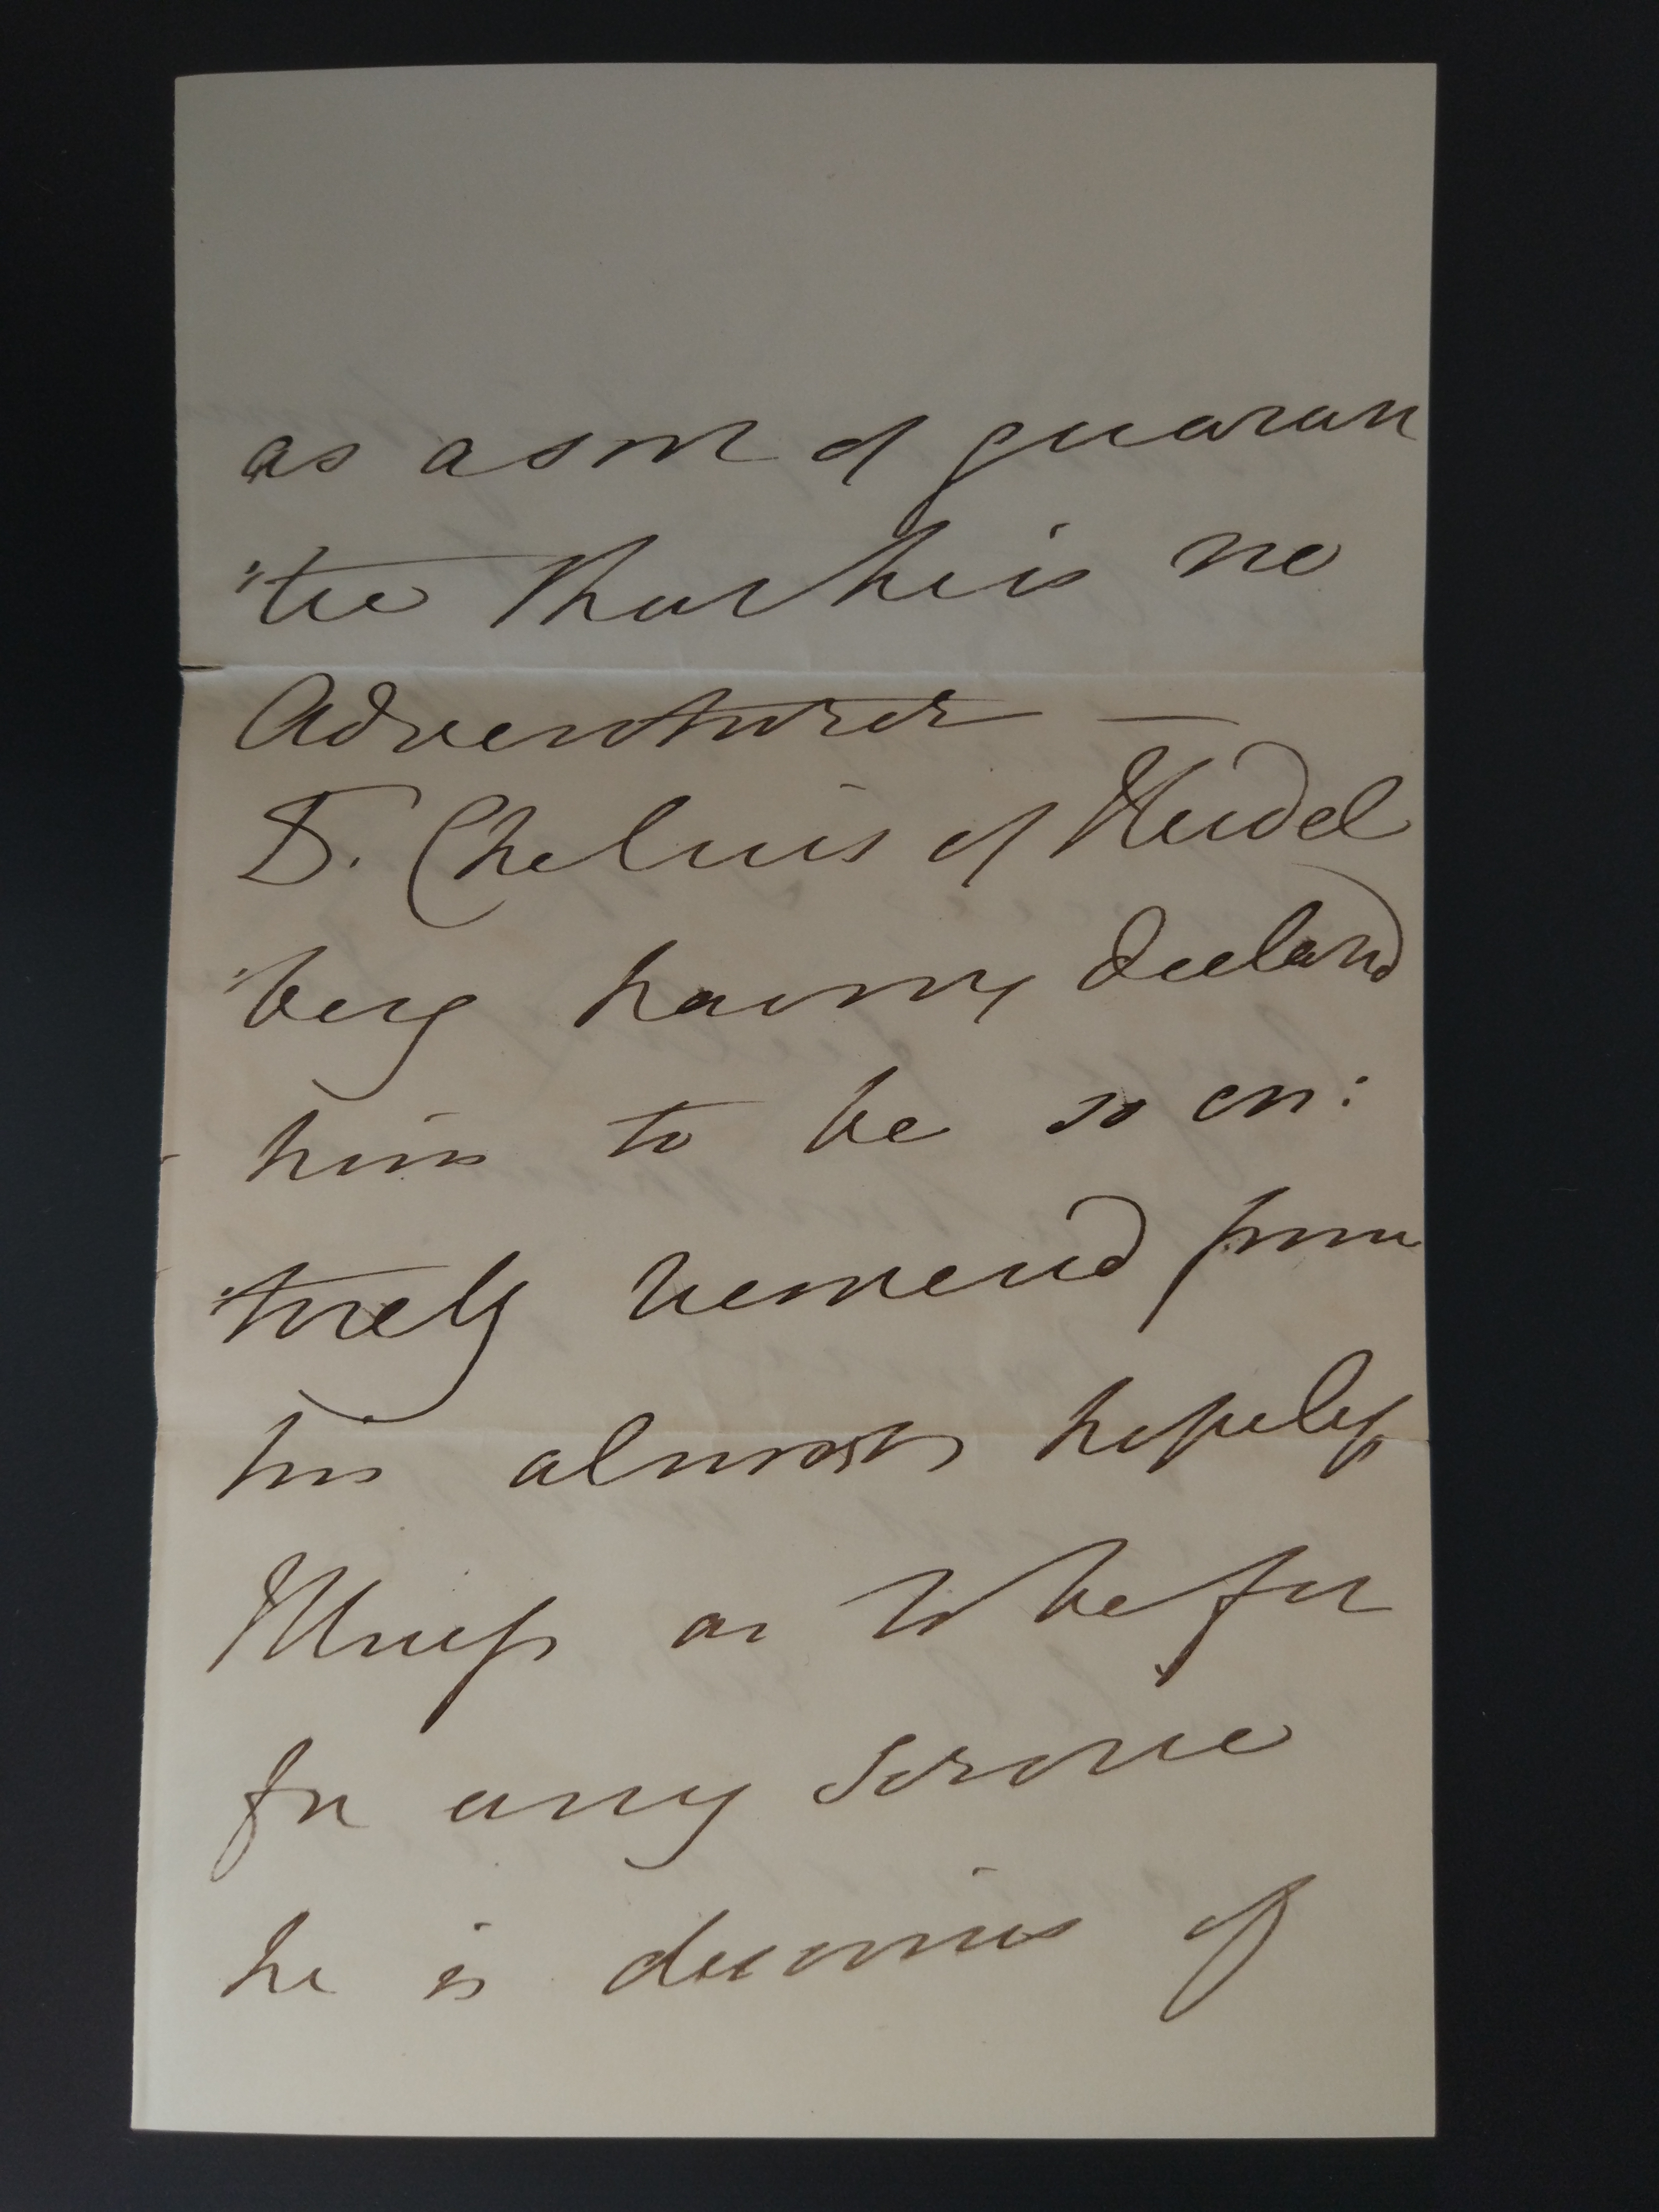 as a sort of guaran
"tee that he is no
Adventurer —
D. Chelius of Heidel
"berg having declared
him to be so en:
"tirely recovered from
his almost hopeless
Illness as to be fit
for any service
he is desirous of